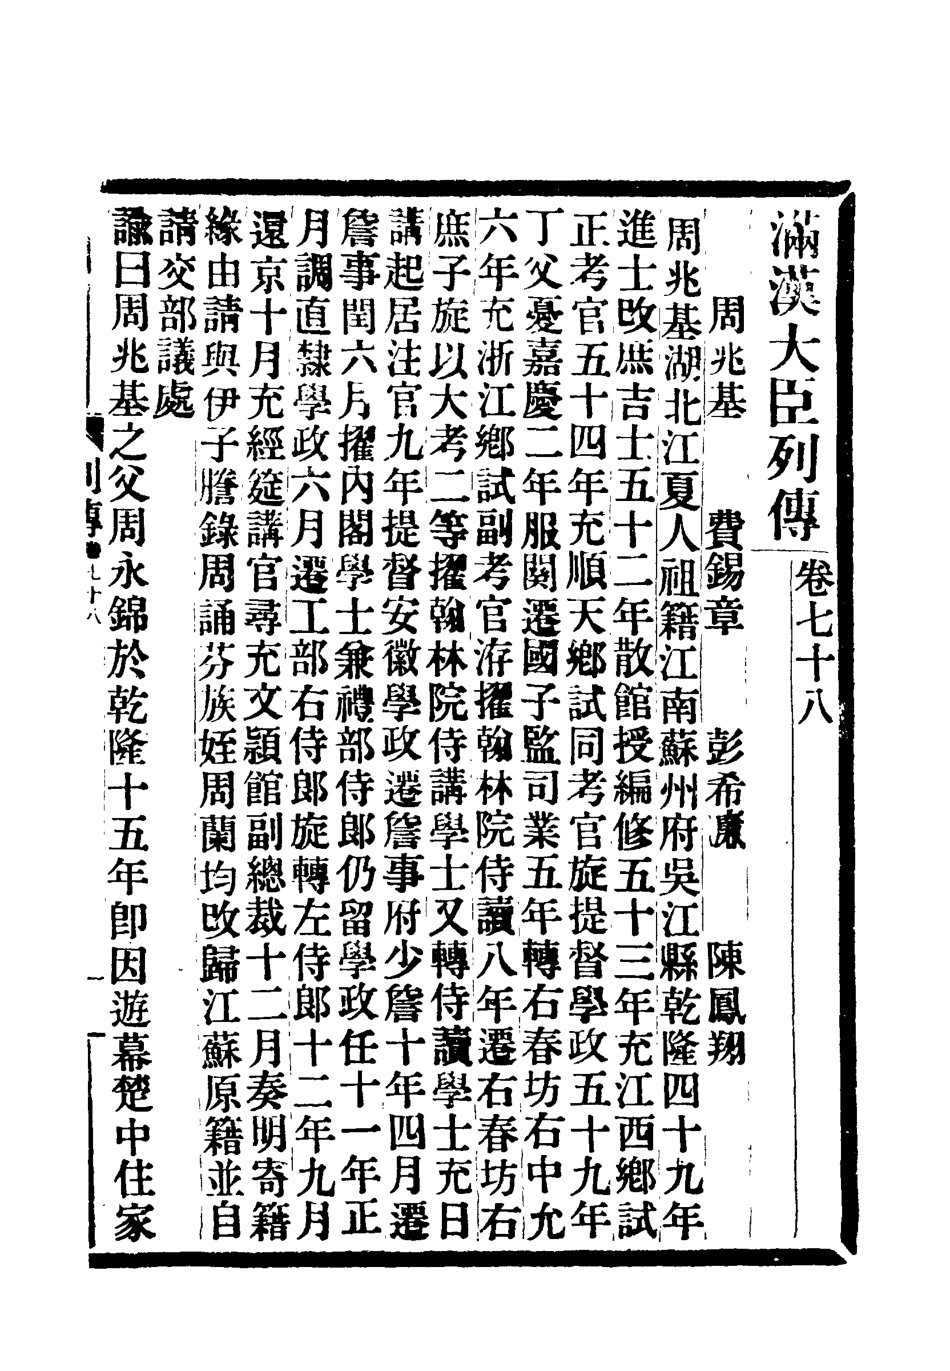 滿漢大臣列傳 卷七十八
周兆基 費錫章 彭希濂 陳鳳翔
周兆基湖北江夏人祖籍江南蘇州府吳江縣乾隆四十九年
進士改庶吉士五十二年散館授編修五十三年充江西鄉試
正考官五十四年充順天鄉試同考官旋提督學政五十九年
丁父憂嘉慶二年服闋遷國子監司業五年轉右春坊右中允
六年充浙江鄉試副考官洊擢翰林院侍讀八年遷右春坊右
庶子旋以大考二等擢翰林院侍講學士又轉侍讀學士充日
講起居注官九年提督安徽學政遷詹事府少詹十年四月遷
詹事閏六月擢內閣學士兼禮部侍郎仍留學政任十一年正
月調直隸學政六月遷工部右侍郎旋轉左侍郎十二年九月
還京十月充經筵講官尋充文穎館副總裁十二月奏明寄籍
緣由請與伊子謄錄周誦芬族姪周蘭均改歸江蘇原籍並自
請交部議處
諭曰周兆基之父周永錦於乾隆十五年卽因遊幕楚中住家
列傳 卷七十八 一